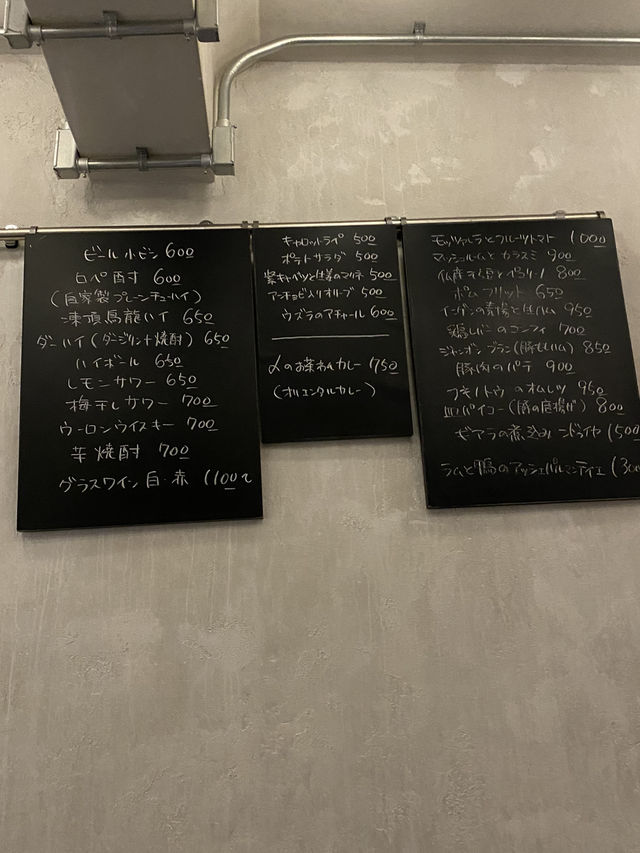 ビール小ビン 600
白ペ酎 600
(自家製プレーンチューハイ)
凍頂烏龍ハイ 650
ダーハイ(ダージリン+焼酎) 650
ハイボール 650
レモンサワー 650
梅干しサワー 700
ウーロンウイスキー 700
芋焼酎 700
グラスワイン 白・赤 1100〜
キャロットラペ 500
ポテトサラダ 500
紫キャベツと生姜のマリネ 500
アンチョビ入りオリーブ 500
ウズラのアチャール 600
〆のお茶わんカレー 750
(オリエンタルカレー)
モッツァレラとフルーツトマト 1000
マッシュルームとカラスミ 900
800
ポムフリット 650
インゲンの素揚と生ハム 950
鶏レバーのコンフィ 700
ジャンボンブラン(豚ももハム) 850
豚肉のパテ 900
フキノトウのオムレツ 950
パイコー(豚の唐揚げ) 800
煮込み 1500
ラムと鴨のアッシェパルマンティエ